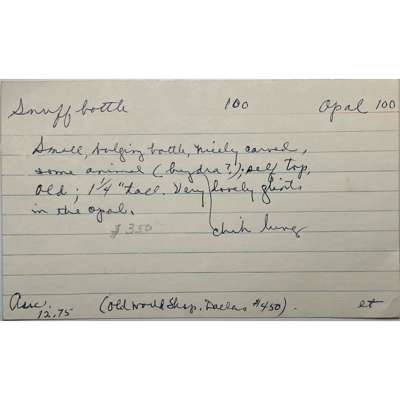 Snuff bottle 100 Opal 100
Small, bulging bottle, nicely carved,
some animal (hydra?); self top,
old; 1 1/4" tall. Very lovely glints
in the opal.
$350
chih lung
12.75 (Old World Shop. Dallas #450). et